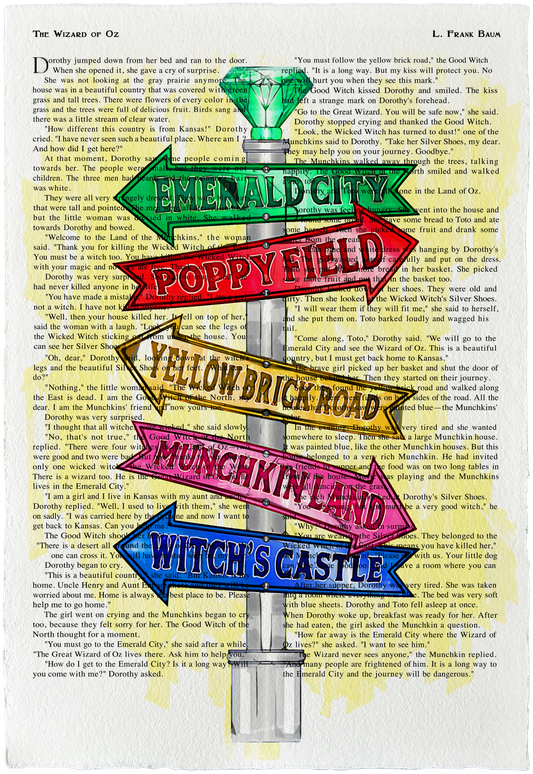 The Wizard of Oz
L. Frank Baum
Dorothy jumped down from her bed and ran to the door.
When she opened it, she gave a cry of surprise.
She was not looking at the gray prairie anymore. The
house was in a beautiful country that was covered with green
grass and tall trees. There were flowers of every color in the
grass and the trees were full of delicious fruit. Birds sang and
there was a little stream of clear water.
"How different this country is from Kansas!" Dorothy
cried. "I have never seen such a beautiful place. Where am I?
And how did I get here?"
At that moment, Dorothy saw some people coming
towards her. The people were
children. The three men
was white.
They were all very
that were tall and pointed
but the little woman was dressed in white. She walked
towards Dorothy and bowed.
"Welcome to the Land of the Munchkins," the woman
said. "Thank you for killing the Wicked Witch of the
You must be a witch too. You have
with your magic and
Dorothy was very surprised.
had never killed anyone in her
"You have made a mistake," Dorothy replied. "I
not a witch. I have not
"Well, then your house killed her. It fell on top of her,"
said the woman with a laugh. "Look, I can see the legs of
the Wicked Witch sticking
can see her Silver Shoes
"Oh, dear," Dorothy
legs and the beautiful Silver
do?"
"Nothing," the little woman
the East is dead. I am the Good Witch of the North,
dear. I am the Munchkins' friend
Dorothy was very surprised.
"I thought that all witches were wicked," she said slowly.
"No, that's not true," the Good Witch of the North
replied. "There were four witches
were good and two were bad
only one wicked witch
There is a wizard too. He is the Great Wizard of Oz
lives in the Emerald City."
"I am a girl and I live in Kansas with my aunt and uncle,"
Dorothy replied. "Well, I used to live with them," she went
on sadly. "I was carried here by the cyclone and now I want to
get back to Kansas. Can you
The Good Witch shook
"There is a desert all around the
one can cross it. You
Dorothy began to cry.
"This is a beautiful country," she said.
home. Uncle Henry and Aunt Em
worried about me. Home is always the best place to be. Please
help me to go home."
The girl went on crying and the Munchkins began to cry
too, because they felt sorry for her. The Good Witch of the
North thought for a moment.
"You must go to the Emerald City," she said after a while.
"The Great Wizard of Oz lives there. Ask him to help you."
"How do I get to the Emerald City? Is it a long way? Will
you come with me?" Dorothy asked.
"You must follow the yellow brick road," the Good Witch
replied. "It is a long way. But my kiss will protect you. No
one will hurt you when they see this mark."
The Good Witch kissed Dorothy and smiled. The kiss
had left a strange mark on Dorothy's forehead.
"Go to the Great Wizard. You will be safe now," she said.
Dorothy stopped crying and thanked the Good Witch.
"Look, the Wicked Witch has turned to dust!" one of the
Munchkins said to Dorothy. "Take her Silver Shoes, my dear.
They may help you on your journey. Goodbye."
The Munchkins walked away through the trees, talking
happily. The Good Witch of the North smiled and walked
alone in the Land of Oz.
went into the house and
some bread to Toto and ate
some fruit and drink some
dress was hanging by Dorothy's
and put on the dress.
bread in her basket. She picked
more fruit and put it in the basket too.
looked down at her shoes. They were old and
dirty. Then she looked at the Wicked Witch's Silver Shoes.
"I wonder if they will fit me," she said to herself,
and she put them on. Toto barked loudly and wagged his
tail.
"Come along, Toto," Dorothy said. "We will go to the
Emerald City and see the Wizard of Oz. This is a beautiful
country, but I must get back home to Kansas."
The brave girl picked up her basket and shut the door of
the house behind her. Then they started on their journey.
found the yellow brick road and walked along
sides of the road. All the
painted blue—the Munchkins'
In the evening, Dorothy was very tired and she wanted
somewhere to sleep. Then she saw a large Munchkin house.
It was painted blue, like the other Munchkin houses. But this
belonged to a very rich Munchkin. He had invited
friends to supper and the food was on two long tables in
playing and the Munchkins
Dorothy's Silver Shoes.
be a very good witch," he
"Why?" Dorothy asked in surprise.
"You are wearing the Silver Shoes. They belonged to the
Wicked Witch
you have killed her,"
with us. Your little dog
have a room where you can
After her supper, Dorothy was very tired. She was taken
into a room where there was a bed. The bed was very soft
with blue sheets. Dorothy and Toto fell asleep at once.
When Dorothy woke up, breakfast was ready for her. After
she had eaten, the girl asked the Munchkin a question.
"How far away is the Emerald City where the Wizard of
Oz lives?" she asked. "I want to see him."
"The Wizard never sees anyone," the Munchkin replied.
"And many people are frightened of him. It is a long way to
the Emerald City and the journey will be dangerous."
EMERALD CITY
POPPY FIELD
YELLOW BRICK ROAD
MUNCHKIN LAND
WITCH'S CASTLE